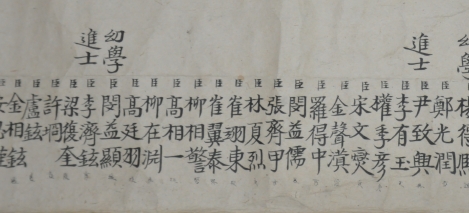 幼學
進士
臣鄭光潤
臣尹致興
臣李有玉
臣權手彦
臣宋文燮
臣金聲漢
臣羅得中
臣閔益儒
臣張齊甲
臣林夏烈
臣崔翊東
臣崔翼泰
臣柳相警
臣高相一
臣柳在渊
臣高廷羽
臣閔益顯
幼學
進士
臣李齊鉉
臣梁復奎
臣許垌
臣盧鉉
臣金相鉉